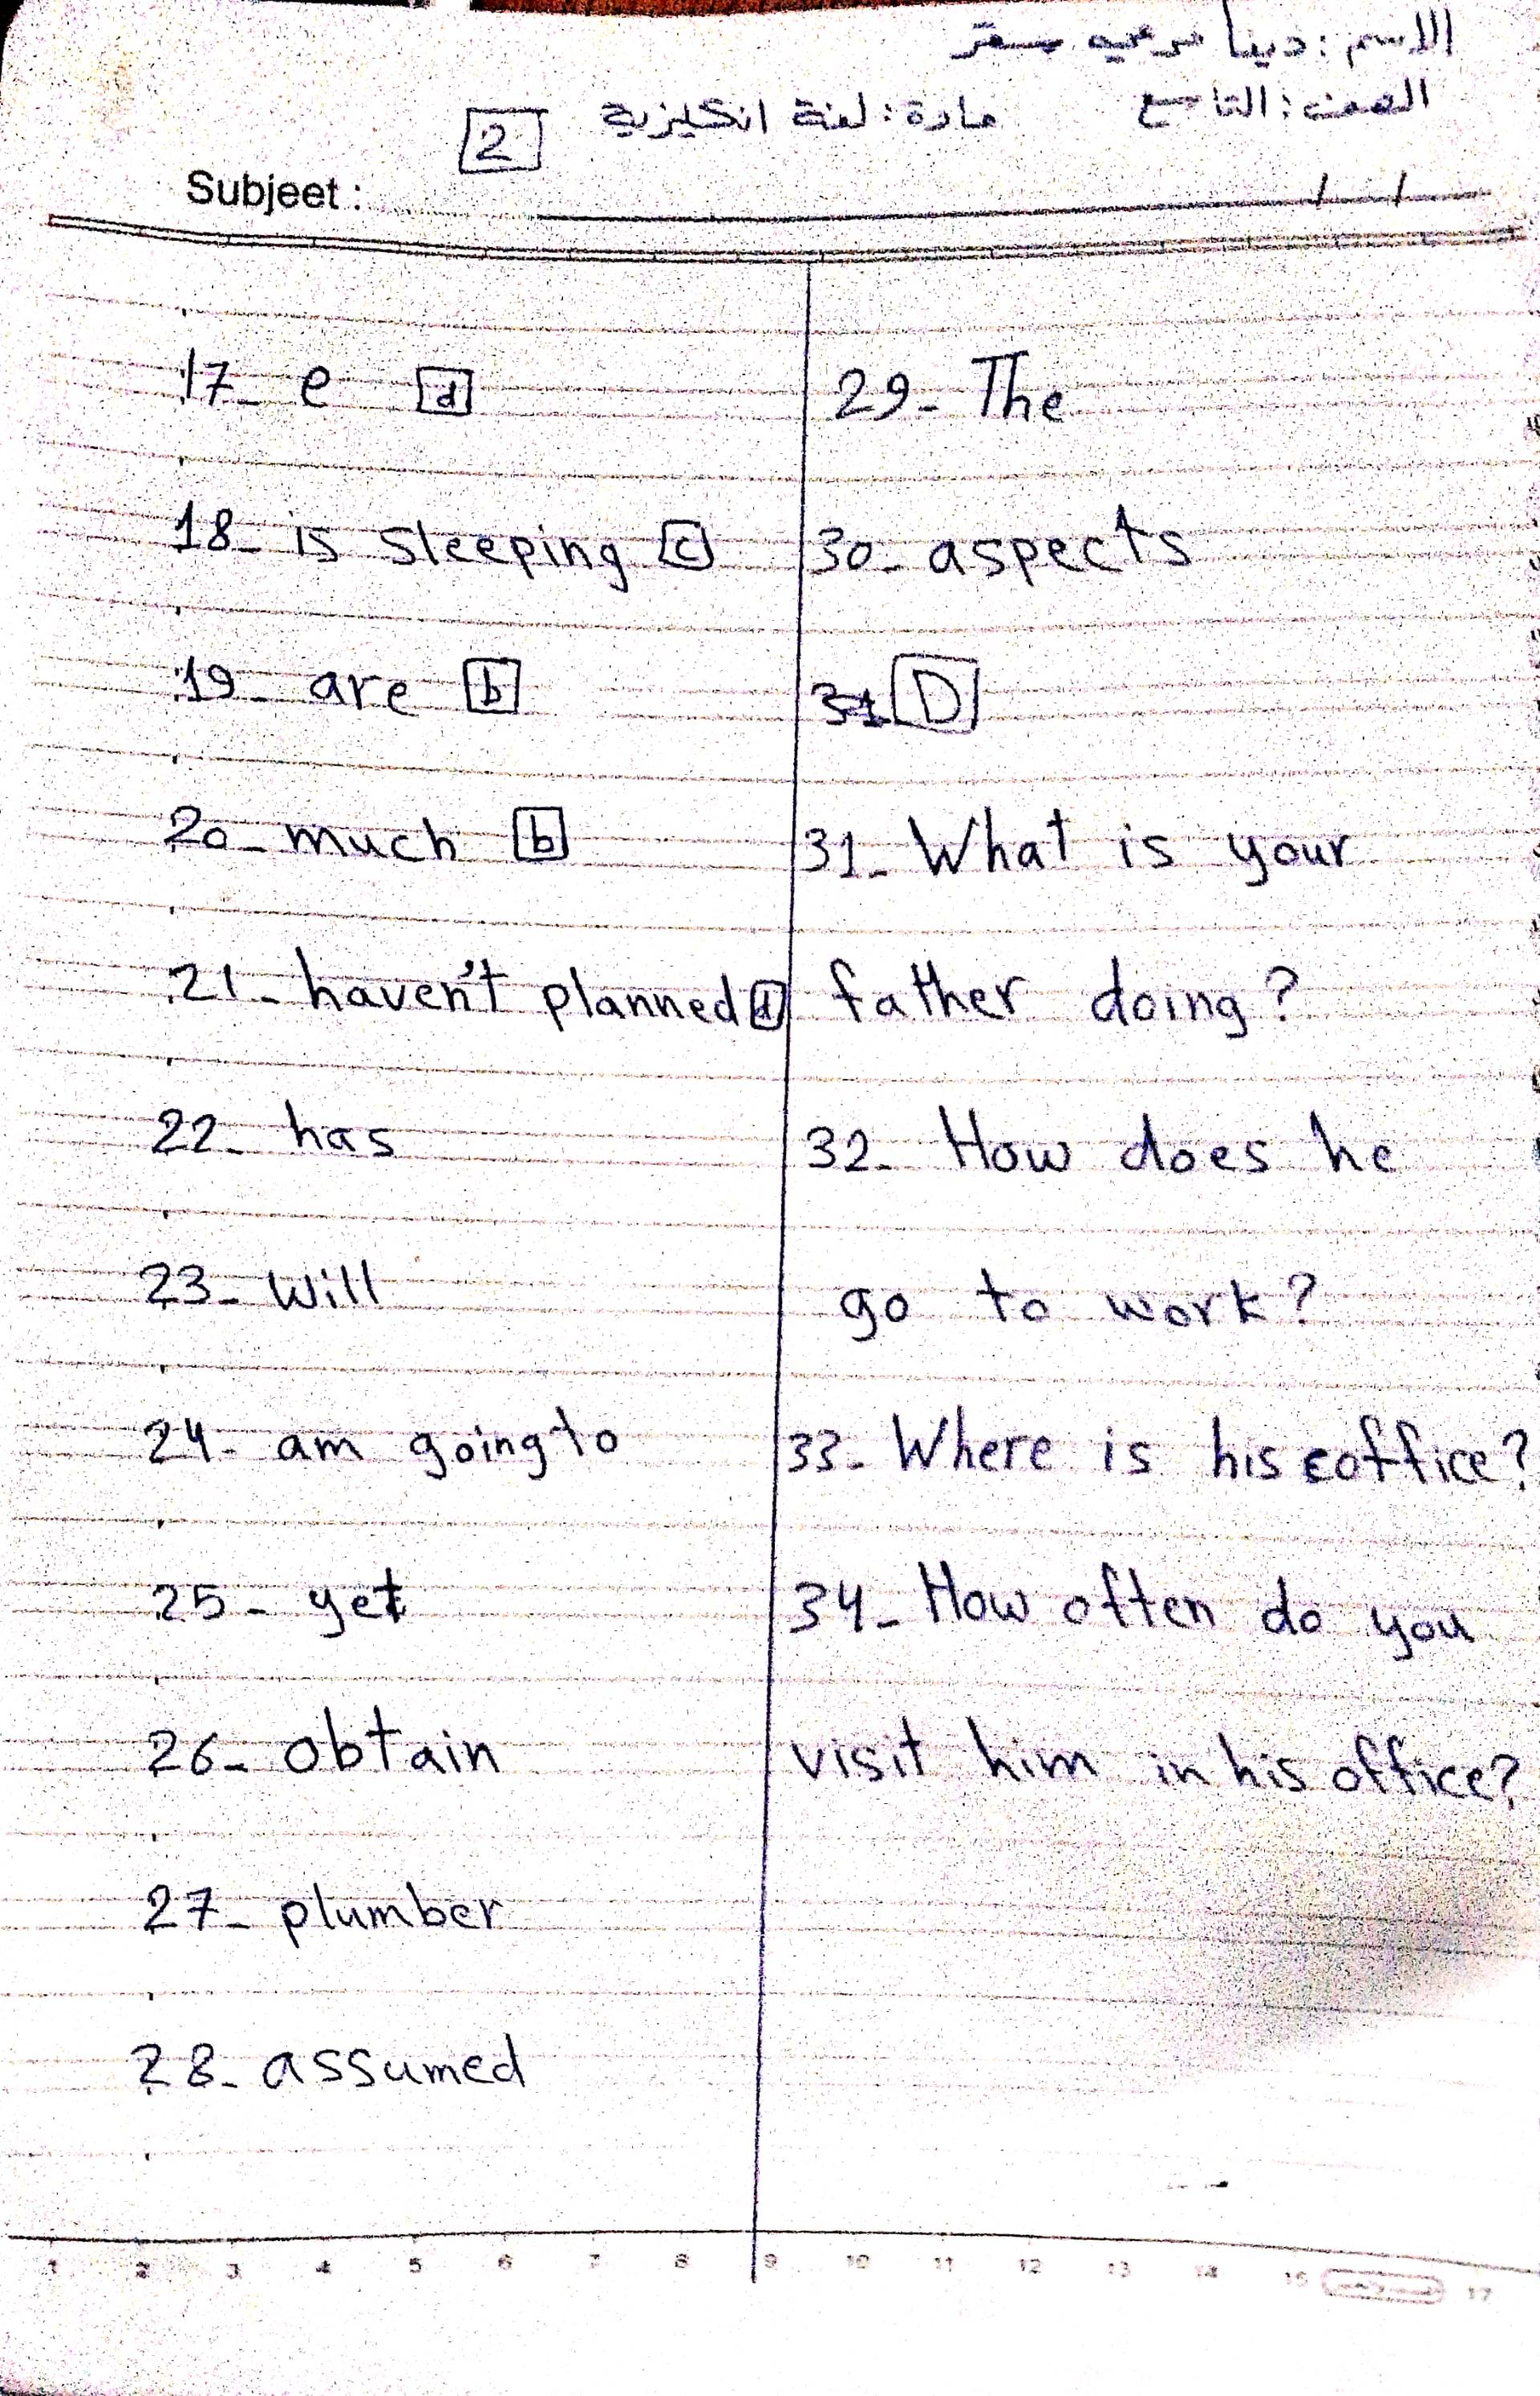 الاسم : دينا مرعي
الصف : التاسع مادة : لغة انكليزية 2
Subjeet : / /
17_ e d
18_ is sleeping c
19_ are b
20_ much b
21_ haven't planned d
22_ has
23_ will
24_ am going to
25_ yet
26_ obtain
27_ plumber
28_ assumed
29_ The
30_ aspects
D
31_ What is your
father doing?
32_ How does he
go to work?
33_ Where is his office?
34_ How often do you
visit him in his office?
1 2 3 4 5 6 7 8 9 10 11 12 13 14 15 17